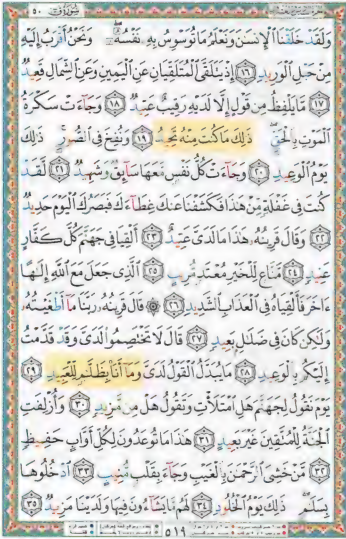 سُورَةُ قٓ ٥٠
وَلَقَدْ خَلَقْنَا ٱلْإِنسَٰنَ وَنَعْلَمُ مَا تُوَسْوِسُ بِهِۦ نَفْسُهُۥ ۖ وَنَحْنُ أَقْرَبُ إِلَيْهِ
مِنْ حَبْلِ ٱلْوَرِيدِ ١٦ إِذْ يَتَلَقَّى ٱلْمُتَلَقِّيَانِ عَنِ ٱلْيَمِينِ وَعَنِ ٱلشِّمَالِ قَعِيدٌ
١٧ مَّا يَلْفِظُ مِن قَوْلٍ إِلَّا لَدَيْهِ رَقِيبٌ عَتِيدٌ ١٨ وَجَآءَتْ سَكْرَةُ
ٱلْمَوْتِ بِٱلْحَقِّ ۖ ذَٰلِكَ مَا كُنتَ مِنْهُ تَحِيدُ ١٩ وَنُفِخَ فِى ٱلصُّورِ ۚ ذَٰلِكَ
يَوْمُ ٱلْوَعِيدِ ٢٠ وَجَآءَتْ كُلُّ نَفْسٍ مَّعَهَا سَآئِقٌ وَشَهِيدٌ ٢١ لَّقَدْ
كُنتَ فِى غَفْلَةٍ مِّنْ هَٰذَا فَكَشَفْنَا عَنكَ غِطَآءَكَ فَبَصَرُكَ ٱلْيَوْمَ حَدِيدٌ
٢٢ وَقَالَ قَرِينُهُۥ هَٰذَا مَا لَدَىَّ عَتِيدٌ ٢٣ أَلْقِيَا فِى جَهَنَّمَ كُلَّ كَفَّارٍ
عَنِيدٍ ٢٤ مَّنَّاعٍ لِّلْخَيْرِ مُعْتَدٍ مُّرِيبٍ ٢٥ ٱلَّذِى جَعَلَ مَعَ ٱللَّهِ إِلَٰهًا
ءَاخَرَ فَأَلْقِيَاهُ فِى ٱلْعَذَابِ ٱلشَّدِيدِ ٢٦ ۞ قَالَ قَرِينُهُۥ رَبَّنَا مَآ أَطْغَيْتُهُۥ
وَلَٰكِن كَانَ فِى ضَلَٰلٍۭ بَعِيدٍ ٢٧ قَالَ لَا تَخْتَصِمُوا۟ لَدَىَّ وَقَدْ قَدَّمْتُ
إِلَيْكُم بِٱلْوَعِيدِ ٢٨ مَا يُبَدَّلُ ٱلْقَوْلُ لَدَىَّ وَمَآ أَنَا۠ بِظَلَّٰمٍ لِّلْعَبِيدِ ٢٩
يَوْمَ نَقُولُ لِجَهَنَّمَ هَلِ ٱمْتَلَأْتِ وَتَقُولُ هَلْ مِن مَّزِيدٍ ٣٠ وَأُزْلِفَتِ
ٱلْجَنَّةُ لِلْمُتَّقِينَ غَيْرَ بَعِيدٍ ٣١ هَٰذَا مَا تُوعَدُونَ لِكُلِّ أَوَّابٍ حَفِيظٍ
٣٢ مَّنْ خَشِىَ ٱلرَّحْمَٰنَ بِٱلْغَيْبِ وَجَآءَ بِقَلْبٍ مُّنِيبٍ ٣٣ ٱدْخُلُوهَا
بِسَلَٰمٍ ۖ ذَٰلِكَ يَوْمُ ٱلْخُلُودِ ٣٤ لَهُم مَّا يَشَآءُونَ فِيهَا وَلَدَيْنَا مَزِيدٌ ٣٥
٥١٩